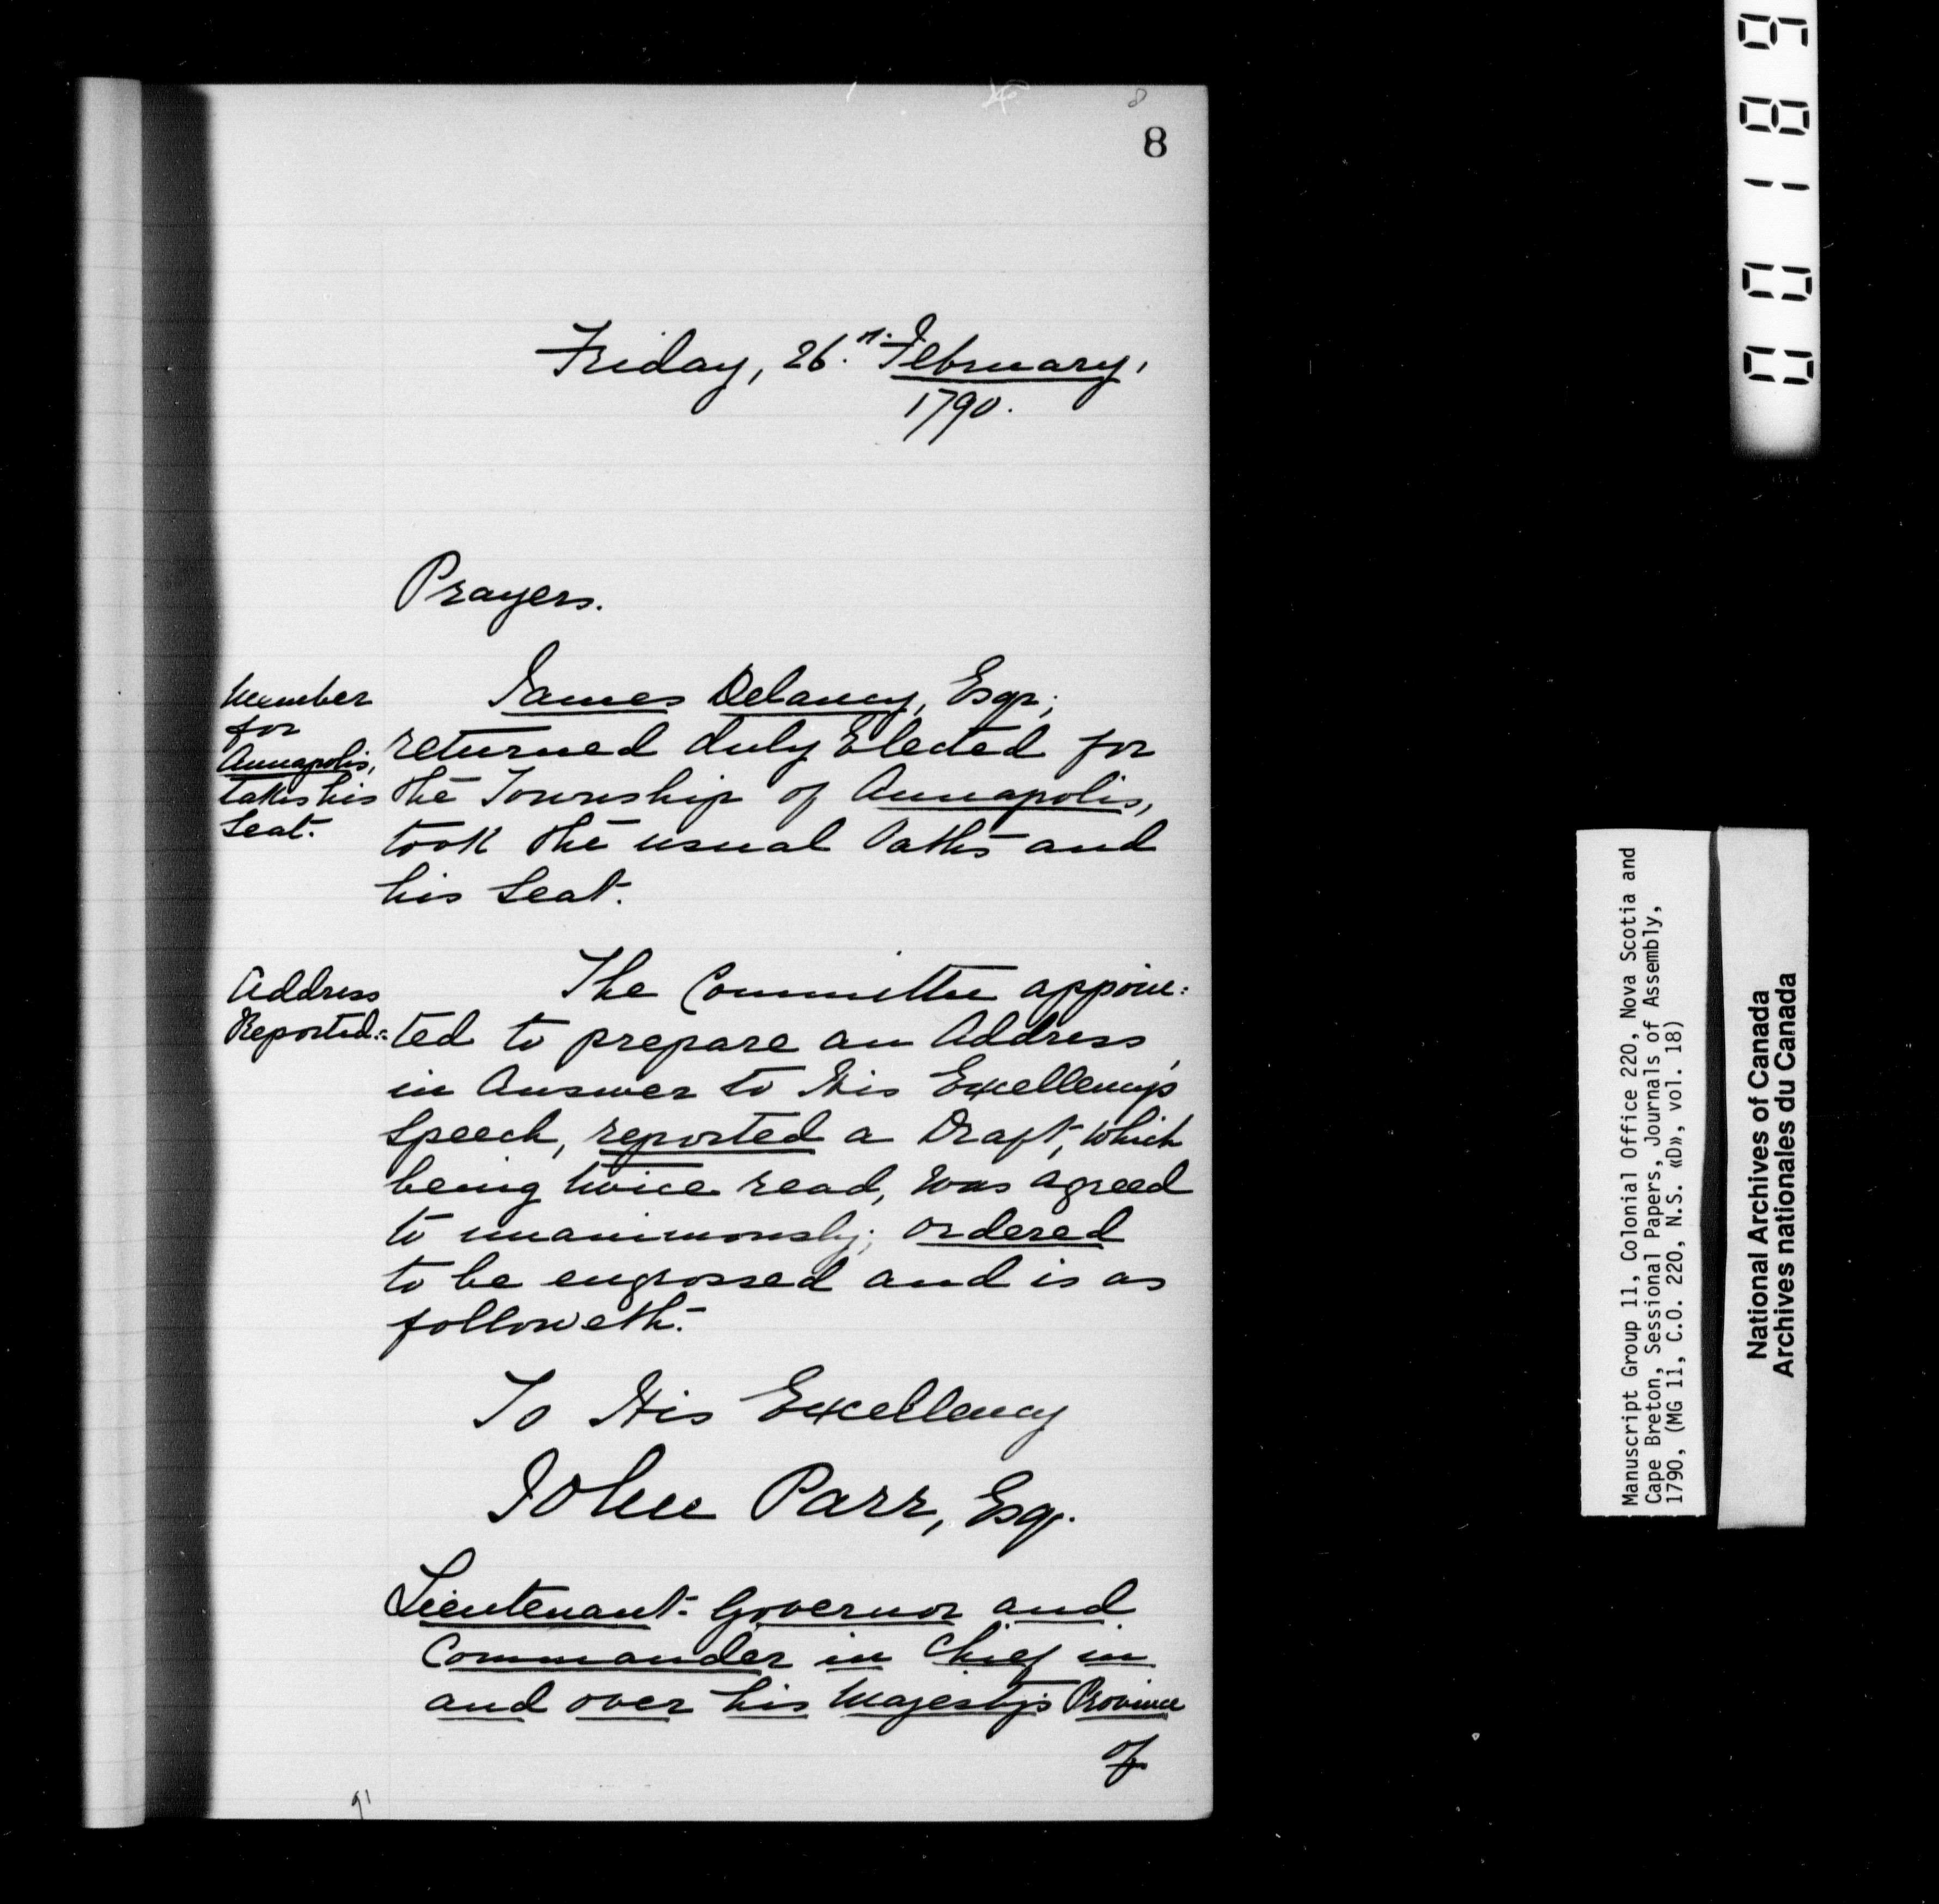 8
8
Friday, 26.th February,
1790.
Prayers.
Member
for
Annapolis,
takes his
Seat.
James Delancy, Esqr;
returned duly Elected for
the Township of Annapolis,
took the usual Oaths and
his Seat.
Address
Reported:-
The Committee appoin:
ted to prepare an Address,
in Answer to His Excellency's
Speech, reported a Draft, which
being twice read, was agreed
to unanimously; ordered
to be engrossed and is as
followeth:
To His Excellency
John Parr, Esqr.
Lieutenant-Governor and
Commander in Chief in
and over his Majesty's Province
of
91
00189
Manuscript Group 11, Colonial Office 220, Nova Scotia and
Cape Breton, Sessional Papers, Journals of Assembly,
1790, (MG 11, C.O. 220, N.S. «D», vol. 18)
National Archives of Canada
Archives nationales du Canada